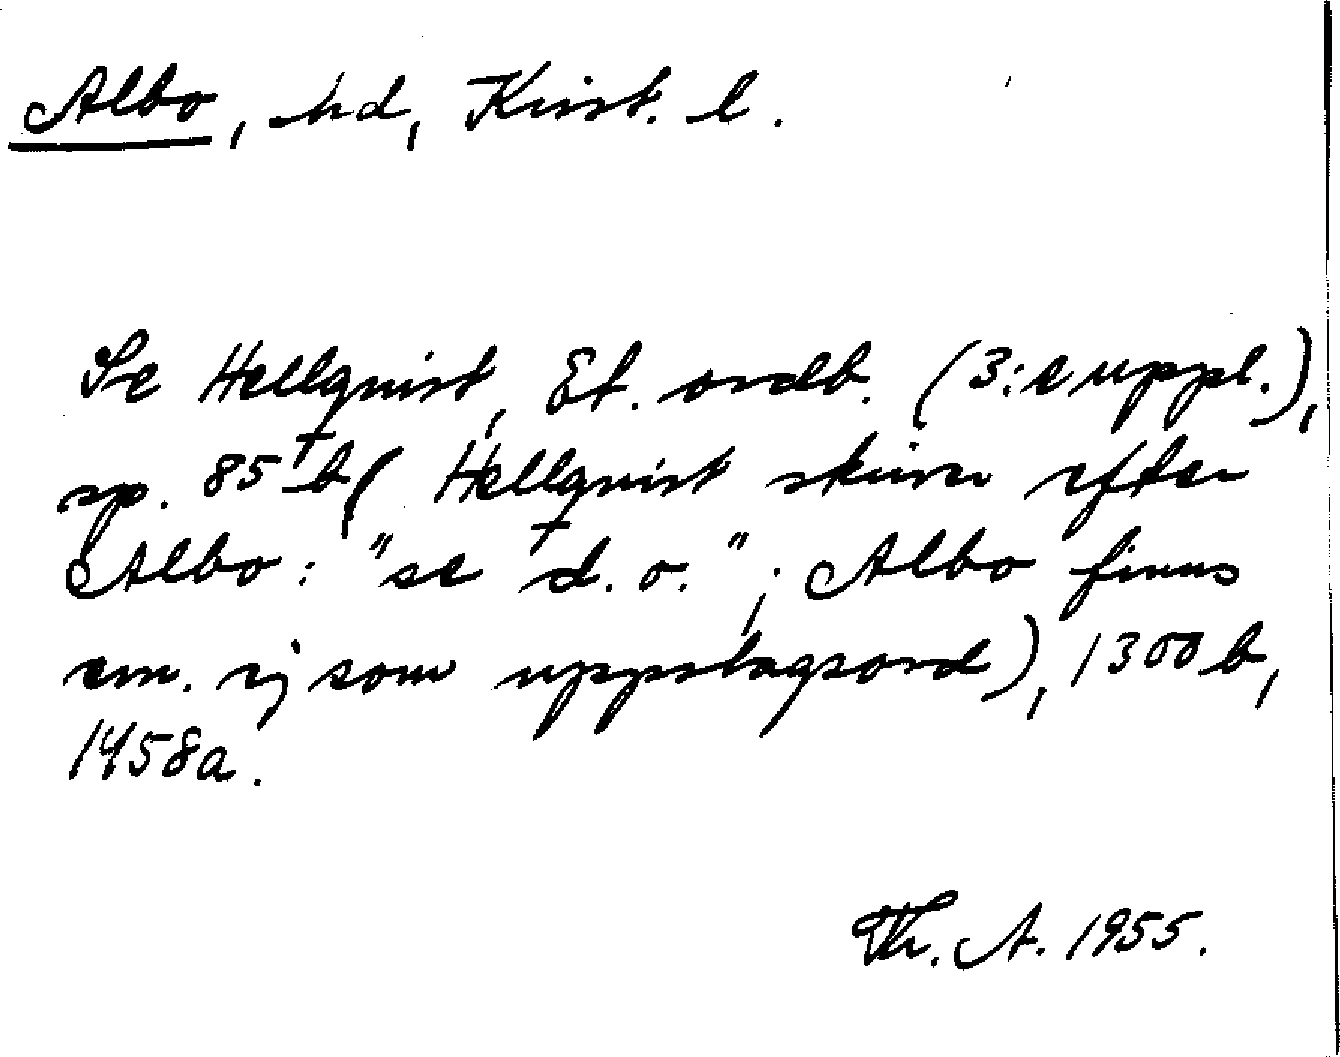 Albo, hd, Krist. l.
Se Hellquist, Et. ordb. (3:e uppl.),
sp. 85 b (Hellquist skriver efter
Albo: "se d. o."; Albo finns
em. ej som uppslagsord), 1300 b,
1458a.
Th. A. 1955.